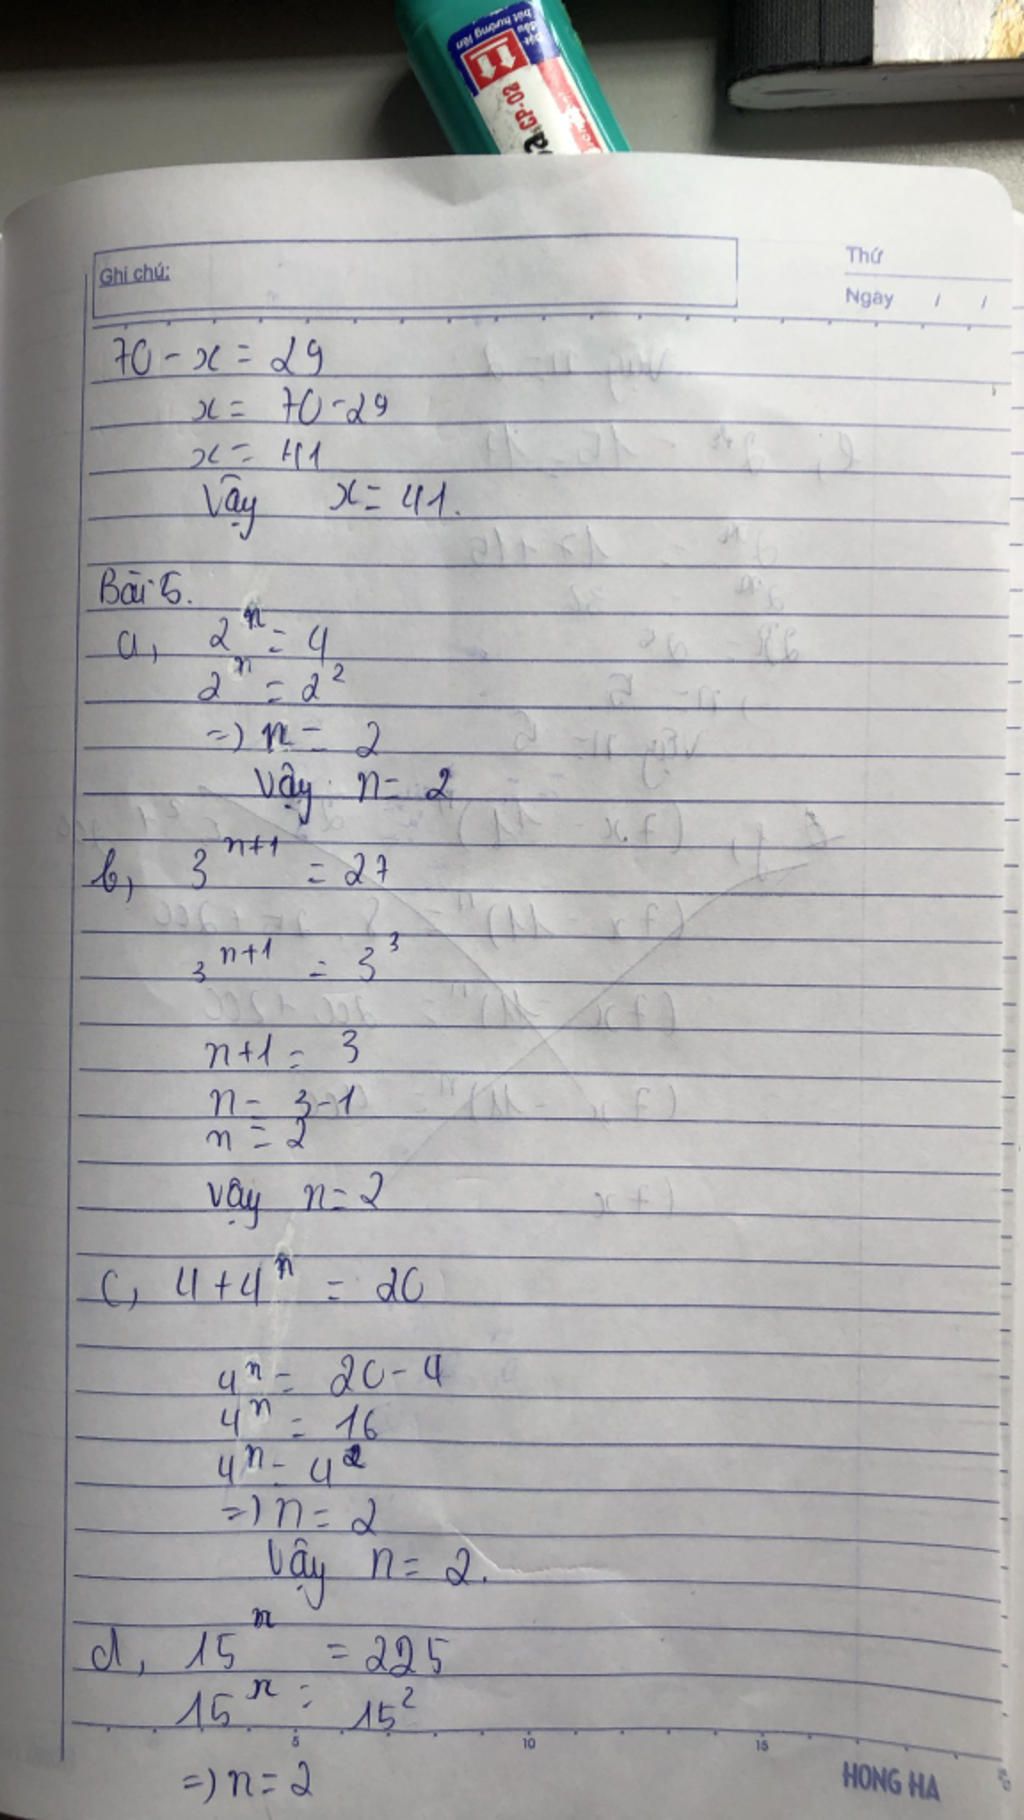 bút hướng lên
CP-02
Ghi chú:
Thứ
Ngày / /
70 - x = 29
x = 70 - 29
x = 41
Vậy x = 41.
Bài 5.
a, 2ⁿ = 4
2ⁿ = 2²
=) n = 2
Vậy n = 2
b, 3ⁿ⁺¹ = 27
3ⁿ⁺¹ = 3³
n+1 = 3
n = 3-1
n = 2
Vậy n = 2
c, 4 + 4ⁿ = 20
4ⁿ = 20 - 4
4ⁿ = 16
4ⁿ = 4²
=) n = 2
Vậy n = 2.
d, 15ⁿ = 225
15ⁿ = 15²
5 10 15
=) n = 2
HONG HA